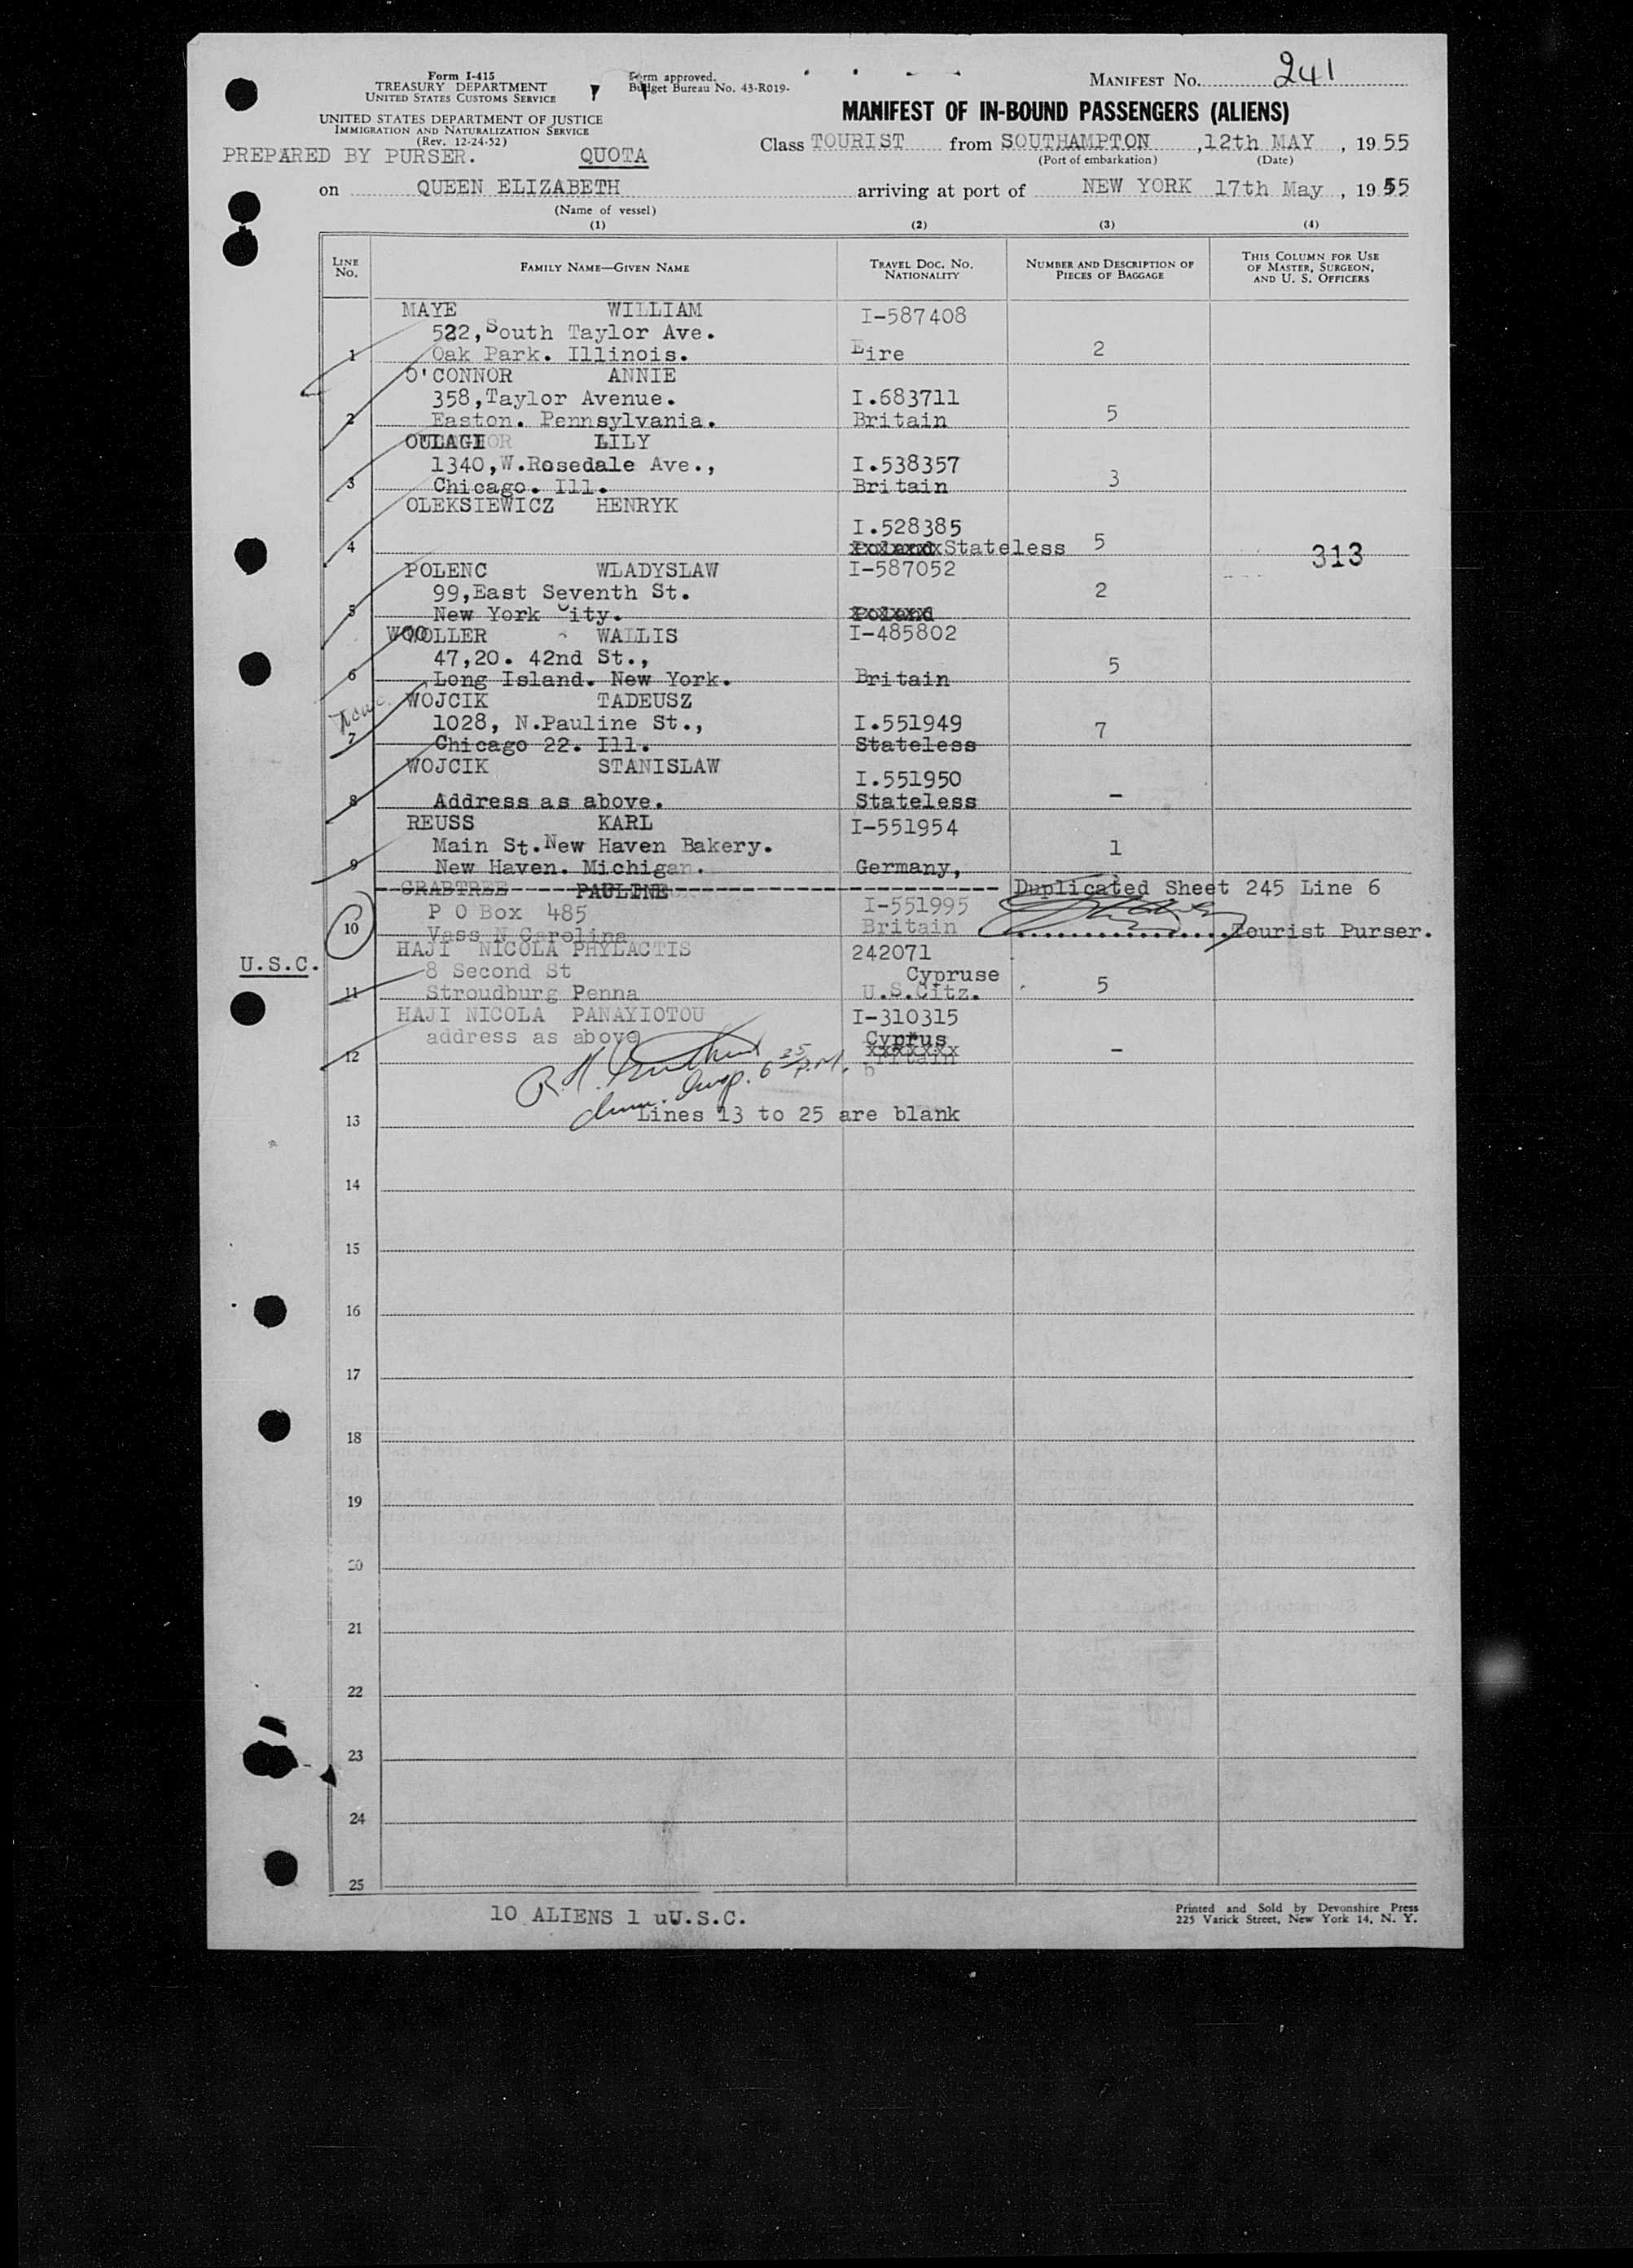 Form I-415
TREASURY DEPARTMENT
UNITED STATES CUSTOMS SERVICE
Form approved.
Budget Bureau No. 43-R019-
MANIFEST No. 241
UNITED STATES DEPARTMENT OF JUSTICE
IMMIGRATION AND NATURALIZATION SERVICE
(Rev. 12-24-52)
MANIFEST OF IN-BOUND PASSENGERS (ALIENS)
PREPARED BY PURSER. QUOTA
Class TOURIST from SOUTHAMPTON ,12th MAY , 1955
(Port of embarkation) (Date)
on QUEEN ELIZABETH arriving at port of NEW YORK 17th May , 1955
(Name of vessel)
(1) (2) (3) (4)
LINE No. FAMILY NAME—GIVEN NAME TRAVEL DOC. No. NATIONALITY NUMBER AND DESCRIPTION OF PIECES OF BAGGAGE THIS COLUMN FOR USE OF MASTER, SURGEON, AND U. S. OFFICERS
MAYE WILLIAM I-587408
522, South Taylor Ave.
1 Oak Park. Illinois. Eire 2
O'CONNOR ANNIE
358,Taylor Avenue. I.683711
2 Easton. Pennsylvania. Britain 5
LILY
1340,W.Rosedale Ave., I.538357
3 Chicago. Ill. Britain 3
OLEKSIEWICZ HENRYK
I.528385
4 Poland Stateless 5 313
POLENC WLADYSLAW I-587052
99,East Seventh St. 2
5 New York City. Poland
WOOLLER WALLIS I-485802
47,20. 42nd St., 5
6 Long Island. New York. Britain
WOJCIK TADEUSZ
1028, N.Pauline St., I.551949 7
7 Chicago 22. Ill. Stateless
WOJCIK STANISLAW
I.551950
8 Address as above. Stateless -
REUSS KARL I-551954
Main St.New Haven Bakery. 1
9 New Haven. Michigan. Germany,
CRABTREE PAULINE Duplicated Sheet 245 Line 6
P O Box 485 I-551995
10 Vass N Carolina Britain Tourist Purser.
HAJI NICOLA PHYLACTIS 242071
U.S.C. 8 Second St Cypruse
11 Stroudburg Penna U.S.Citz. 5
HAJI NICOLA PANAYIOTOU I-310315
address as above Cyprus
12 Britain -
R.H.
Imm. Insp. 6 25 P.M.
Lines 13 to 25 are blank
13
14
15
16
17
18
19
20
21
22
23
24
25
10 ALIENS 1 uU.S.C.
Printed and Sold by Devonshire Press
225 Varick Street, New York 14, N. Y.